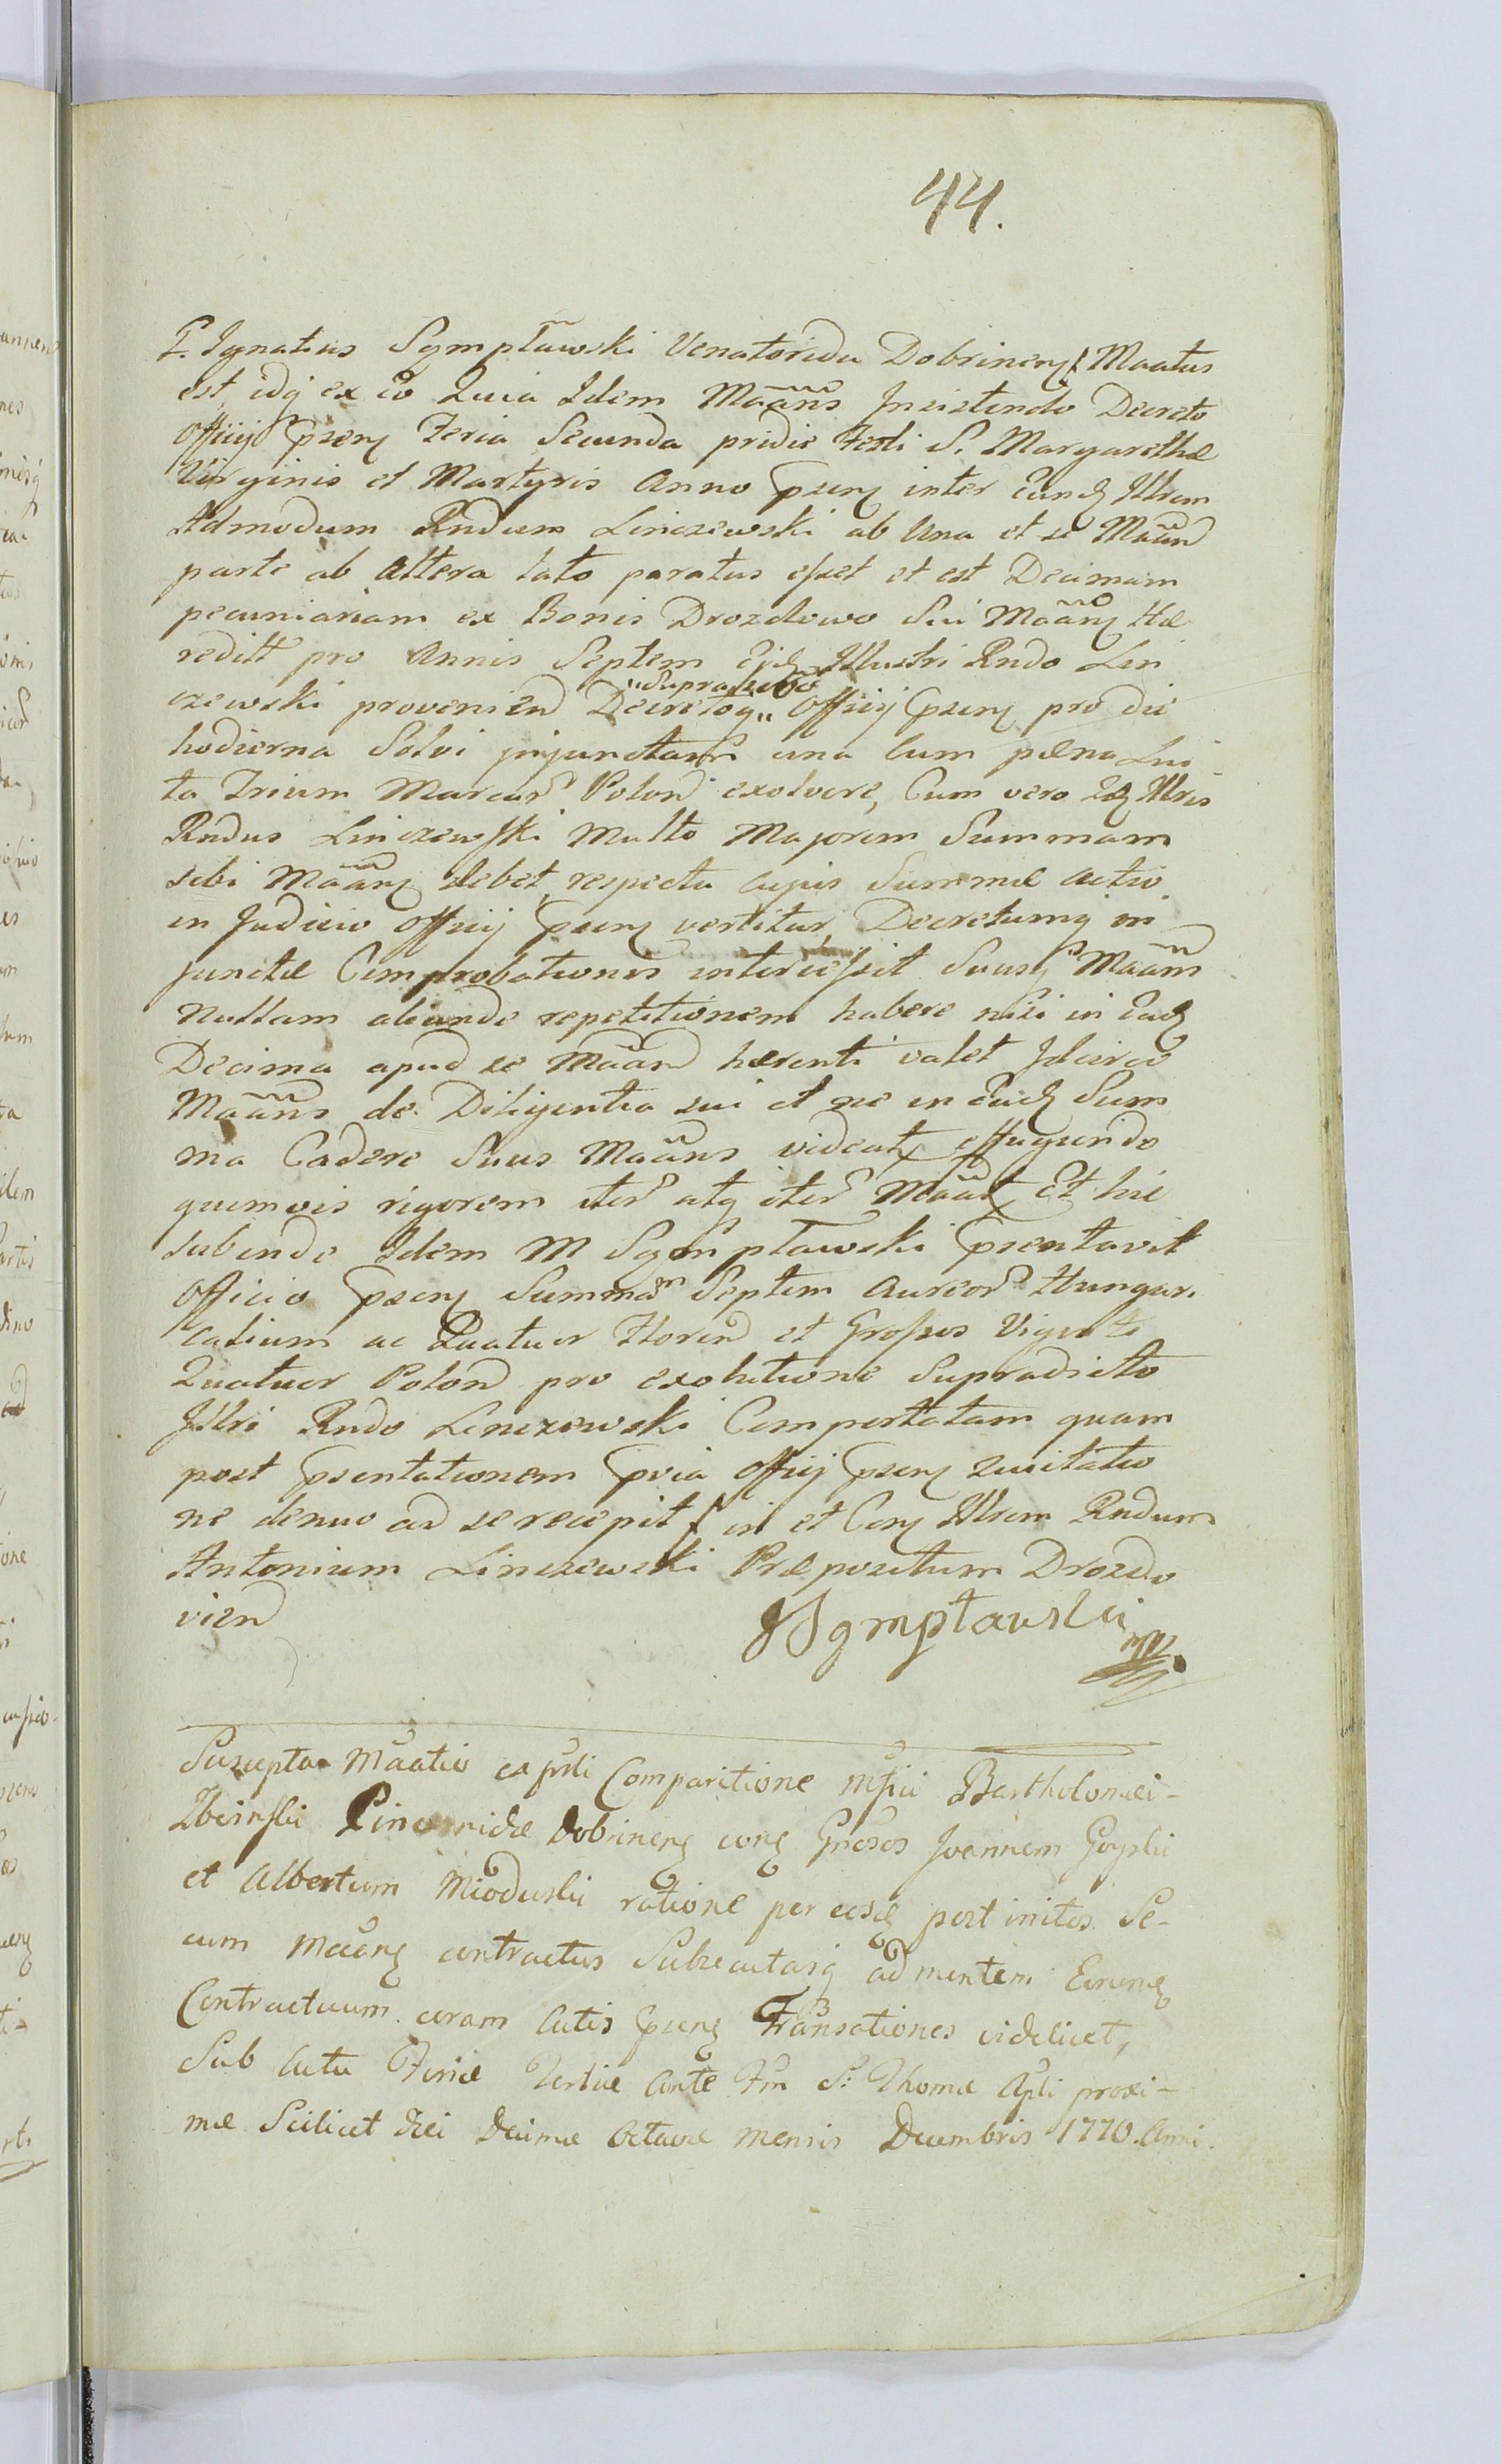 44.
G. Ignatius Sgmpławski Venatorida Dobrinen Maatus
est idq ex eo Quia Idem Maans Insistendo Decreto
Officij psen Feria Secunda pridie Festi S. Margarethæ
Virginis et Martyris Anno psen inter Eund Illrem
Admodum Rndum Linczewski ab Una et se Maan
parte ab Altera lato paratus esset et est Decimam
pecuniariam ex Bonis Drozdowo Sui Maan Hæ
reditt pro Annis Septem Ejd Illustri Rndo Lin
czewski provenien Decretoq „ Officij psen pro die
hodierna Solvi injunctam una cum pæna Lui
ta Trium Marcar Polon exolvere, Cum vero Id Illris
Rndus Linczewski Multo Majorem Summam
sibi Maan debet, respectu cujus Summæ actio
in Judicio Officij psen vertitur, Decretumq in
junctæ Comprobationis intercessit Suusq Maans
nullam aliunde repetitionem habere nisi in Ead
Decima apud se Maan hærenti valet Idcirco
Maans de Diligentia sui et ne in Ead Sum
ma Cadere Suus Maans videat effugiendo
quemvis rigorem iter atq iter Maat, Et hic
subinde Idem M Sgmpławski psentavit
Officio psen Summam Septem Aureor Hungari
calium ac Quatuor Floren et Grossos Viginti
Quatuor Polon pro exolutione Supradicto
Illri Rndo Linczewski Comportatam quam
post psentationem pvia Officij psen Quitatio
ne denuo ad se recepit in et Con Illrem Rndum
Antonium Linczewski Præpositum Drozdo
vien
Sgmpławski mp.
Suscepta Maatio ex psli Comparitione Mfici Bartholomæi-
Zboinski Pincernidæ Dobrinen con Gnosos Joannem Goyski
et Albertum Mioduski ratione per eosd post initos Se-
cum Maan contractus Subsecutasq ad mentem Eorund
Contractuum coram Actis psen Transactiones videlicet,
Sub Actu Feriæ Tertiæ Ante Ftm S: Thomæ Apli proxi-
mæ Scilicet Diei Decimæ Octavæ mensis Decembris 1770. Anni.